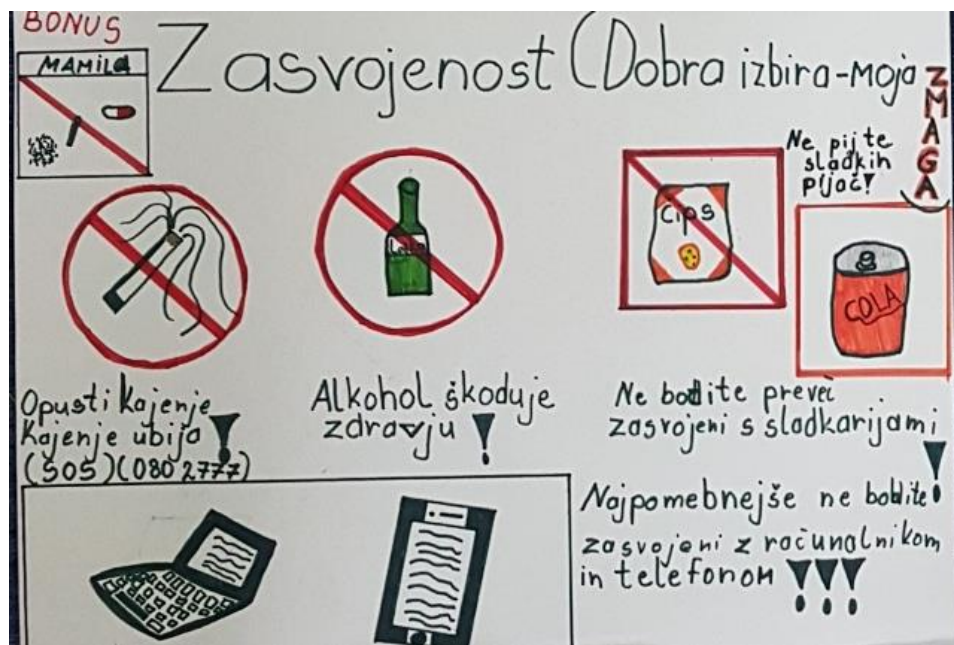 BONUS
MAMILA
Zasvojenost (Dobra izbira-moja
ZMAGA)
Ne pijte
sladkih
pijač!
Cips
COLA
Opusti kajenje
Kajenje ubija!
(SOS)(080 2777)
Alkohol škoduje
zdravju!
Ne bodite preveč
zasvojeni s sladkarijami!
Najpomebnejše ne bodite
zasvojeni z računalnikom
in telefonom !!!